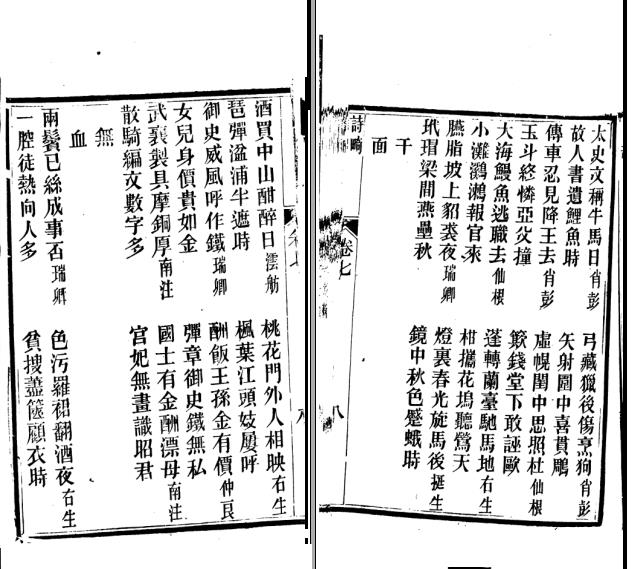 太史文稱牛馬日 肖彭 弓藏獵後傷烹狗 肖彭
故人書遺鯉魚時 矢射圍中喜貫鵰
傳車忍見降王去 肖彭 虛幌閨中思照杜 仙根
玉斗終憐亞父撞 簌錢堂下敢誣歐
大海鰻魚逃職去 仙根 蓬轉蘭臺馳馬地 右生
小灘鸂鶒報官來 柑攜花塢聽鶯天
臙脂坡上貂裘夜 瑞卿 燈裏春光旋馬後 挺生
玳瑁梁間燕壘秋 鏡中秋色蹙蛾時
干
面
詩畸 卷七 八
酒買中山酣醉日 澐舫 桃花門外人相映 右生
琶彈湓浦半遮時 楓葉江頭妓屢呼
御史威風呼作鐵 瑞卿 酬飯王孫金有價 仲良
女兒身價貴如金 彈章御史鐵無私
武襄製具摩銅厚 南注 國士有金酬漂母 南注
散騎編文數字多 宮妃無畫識昭君
無
血
兩鬢已絲成事否 瑞卿 色污羅裙翻酒夜 右生
一腔徒熱向人多 貧搜藎篋顧衣時